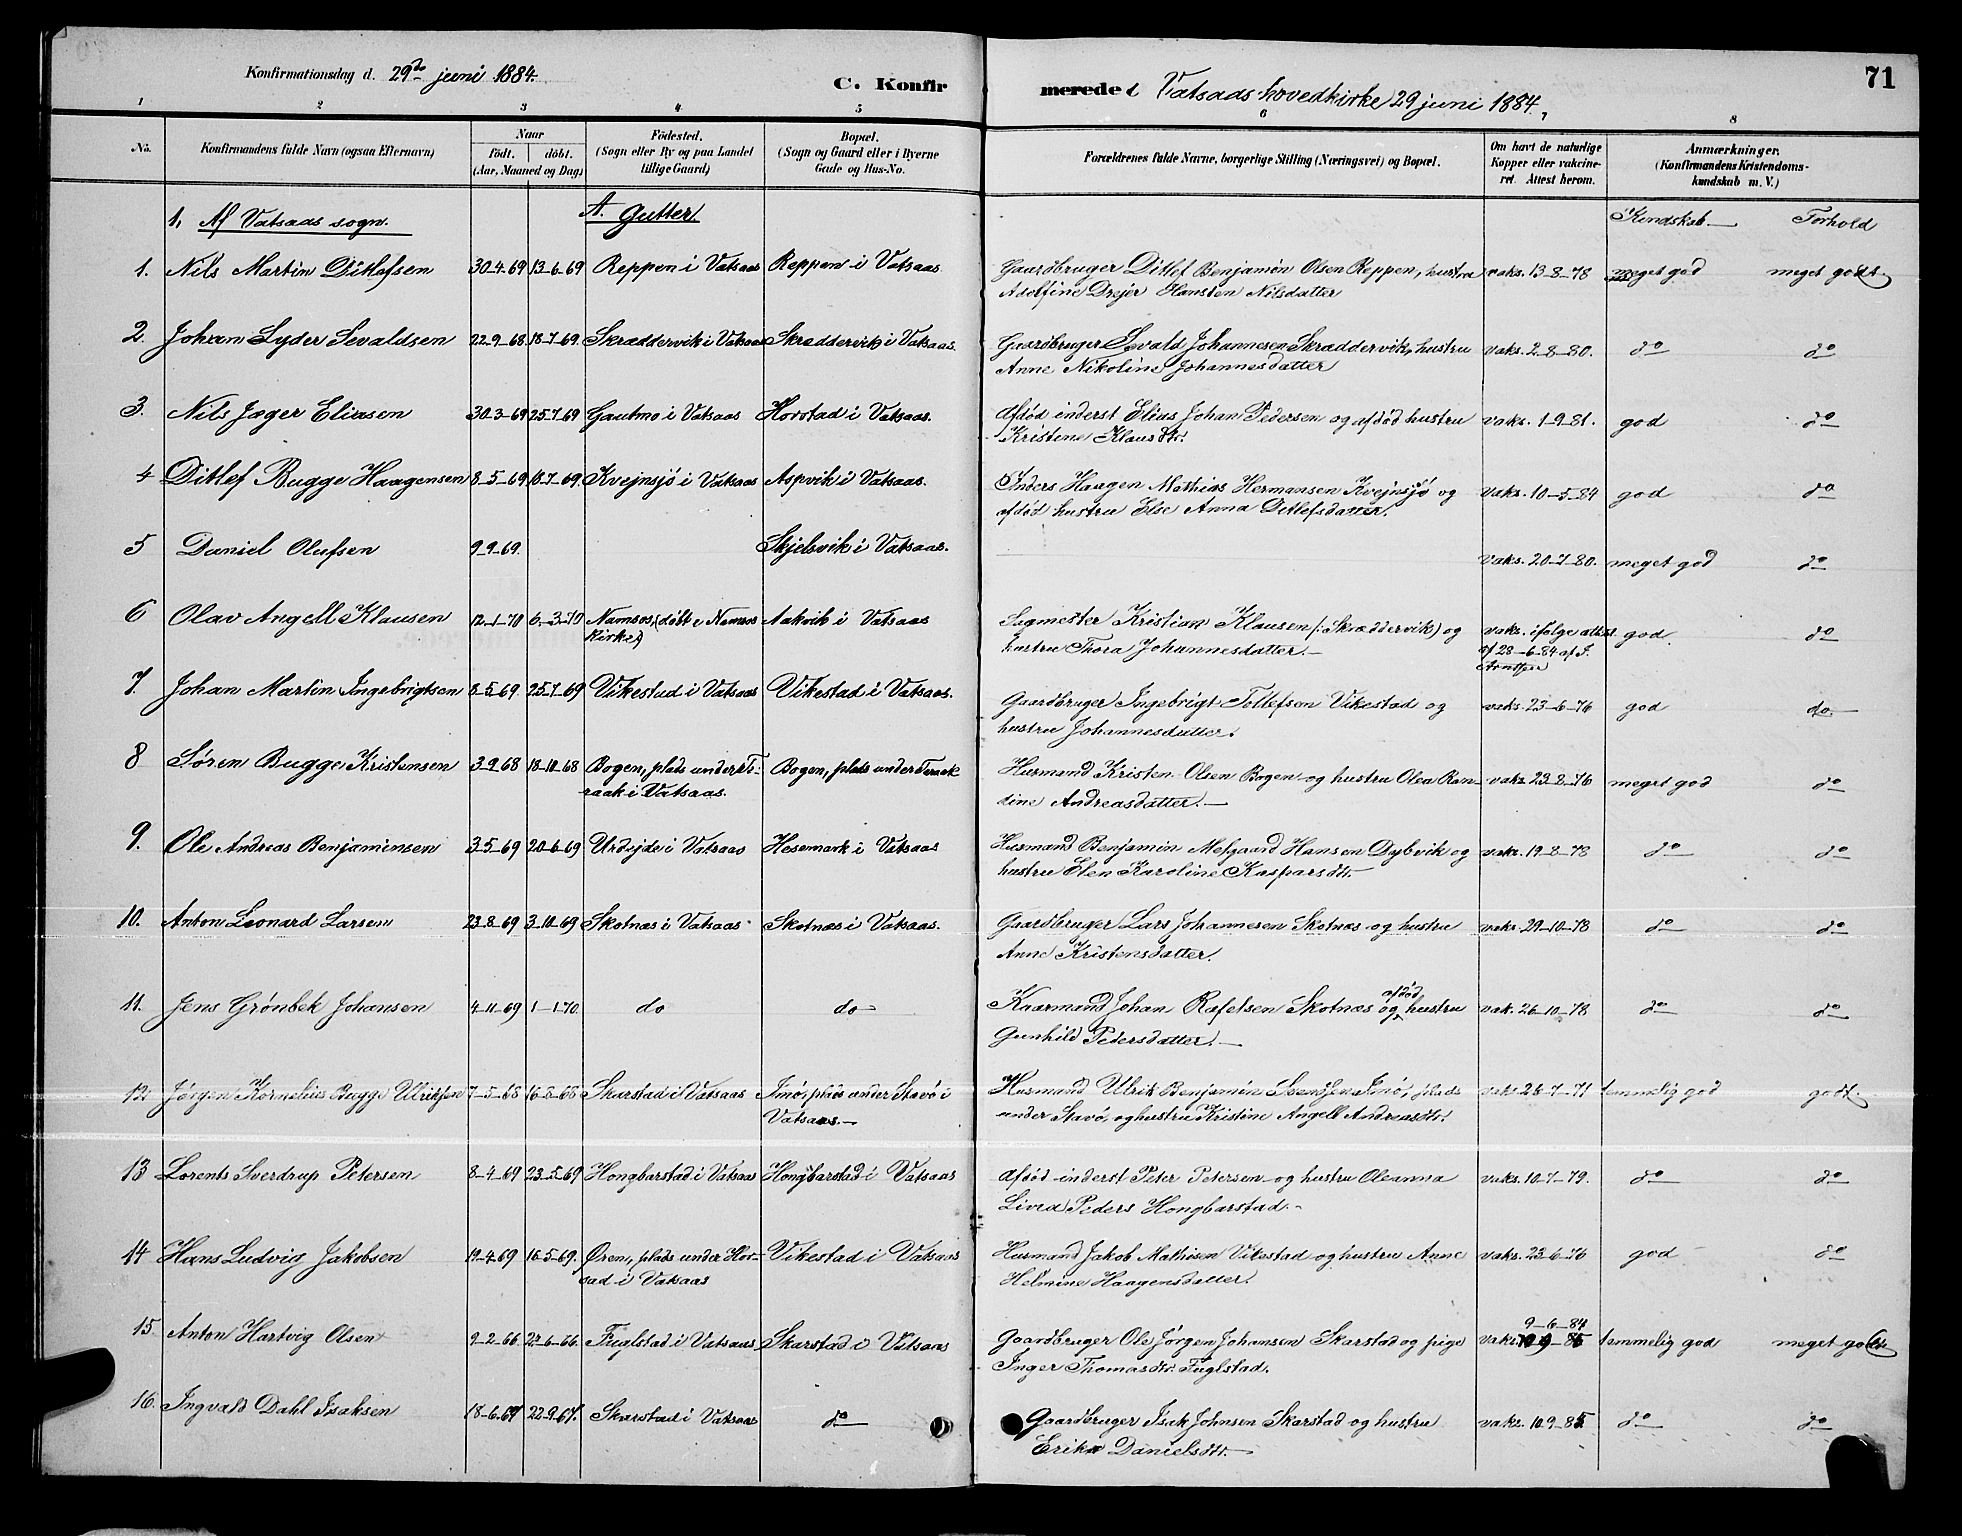 Konfirmationsdag d. 29de juni 1884.
C. Konfir
merede i Vatsaas hovedkirke 29 juni 1884.
71
1 2 3 4 5 6 8
No.
Konfirmandens fulde Navn (ogsaa Efternavn)
Naar
født. døbt.
(Aar, Maaned og Dag)
Fødested.
(Sogn eller By og paa Landet
tillige Gaard)
Bopæl.
(Sogn og Gaard eller i Byerne
Gade og Hus-No.
Forældrenes fulde Navne, borgerlige Stilling (Næringsvei) og Bopæl.
Om havt de naturlige
Kopper eller vakcine-
ret. Attest herom.
Anmærkninger.
(Konfirmandens Kristendoms-
kundskab m. V.)
1. Af Vatsaas sogn.
A. Gutter
Kundskab Forhold
1. Nils Martin Ditlefsen 30-4-69 13-6-69 Reppen i Vatsaas Reppen i Vatsaas
Gaardbruger Ditlef Benjamin Olsen Reppen, hustru vaks. 13-8-78 meget god meget godt.
Adelfine Drejer Hansten Nilsdatter
2. Johan Lyder Sevaldsen 22-9-68 18-7-69. Skræddervik i Vatsaas Skræddervik i Vatsaas.
Gaardbruger Sevald Johannesen Skræddervik, hustru vaks. 2-8-80. do do
Anne Nikoline Johannesdatter
3. Nils Jæger Eliasen 30-3-69 25-7-69 Gautmo i Vatsaas Horstad i Vatsaas.
Afdød inderst Elias Johan Pedersen og afdød hustru vaks. 1-9-81. god do
Kristine Klausdtr.
4 Ditlef Bugge Haagensen 8-5-69 18-7-69. Kvejnsjø i Vatsaas Aspvik i Vatsaas.
Inders Haagen Mathias Hermansen Kvejnsjø og vaks. 10-5-84 god do
afdød hustru Else Anna Ditlefsdatter.
5 Daniel Olufsen 9-9-69. Skjelsvik i Vatsaas.
vaks. 20-7-80. meget god do
6 Olav Angell Klausen 12-1-70 6-3-70 Namsos, (døbt i Namsos Aakvik i Vatsaas
kirke)
Sagmester Kristian Klausen (: Skræddervik) og vaks. ifølge attest god. do
hustru Thora Johannesdatter.— af 28-6-84 af
7. Johan Martin Ingebrigtsen 8-5-69 25-7-69 Vikestad i Vatsaas Vikestad i Vatsaas.
Gaardbruger Ingebrigt Tollefsen Vikestad og vaks. 23-6-76 god do.
hustru Johannesdatter.
8 Søren Bugge Kristensen 3-9-68 18-10-68 Bogen, plads under Te- Bogen, plads under Teraak
raak i Vatsaas.
Husmand Kristen Olsen Bogen og hustru Olea Ran- vaks. 23-8-76 meget god do
dine Andreasdatter.—
9. Ole Andreas Benjaminsen 3-5-69 20-6-69 Urdejde i Vatsaas Hesemark i Vatsaas
Husmand Benjamin Mefgaard Hansen Dybvik og vaks. 19-8-78 do do
hustru Elen Karoline Kaspersdtr.
10. Anton Leonard Larsen 23-8-69 3-10-69 Skotnæs i Vatsaas Skotnæs i Vatsaas.
Gaardbruger Lars Johannesen Skotnæs og hustru vaks. 29-10-78 do do
Anne Kristensdatter.
11. Jens Grønbek Johansen 4-11-69 1-1-70. do do
Kaarmand Johan Rafelsen Skotnæs og afdød hustru vak. 26-10-78 do do
Gunhild Pedersdatter.—
12. Jørgen Kornelius Bugge Ulriksen 7-5-68 16-8-68 Skarstad i Vatsaas Imø, plads under Stavø i
Vatsaas.—
Husmand Ulrik Benjamin Svendsen Imø, plads vaks. 28-7-71 temmelig god godt.
under Stavø, og hustru Kristine Angell Andreasdtr.
13 Lorents Sverdrup Petersen 8-4-69 23-5-69 Hongbarstad i Vatsaas Hongbarstad i Vatsaas
Afdød inderst Peter Petersen og hustru Oleanna vaks. 10-7-79. do do
Livia Peders Hongbarstad.—
14 Hans Ludvig Jakobsen 19-4-69 16-5-69. Øren, plads under Hor- Vikestad i Vatsaas
sad i Vatsaas
Husmand Jakob Mathisen Vikestad og hustru Anne vaks. 23-6-76 god do
Helmine Haagensdatter.
15. Anton Hartvig Olsen 9-2-66 24-6-66. Fuglstad i Vatsaas Skarstad i Vatsaas
9-6-84
Gaardbruger Ole Jørgen Johansen Skarstad og pige vaks. temmelig god meget godt
Inger Thomasdtr. Fuglstad.
16. Ingvald Dahl Isaksen 18-6-67 22-9-67. Skarstad i Vatsaas do
Gaardbruger Isak Johnsen Skarstad og hustru vaks. 10-9-85. do do
Erika Danielsdtr.—